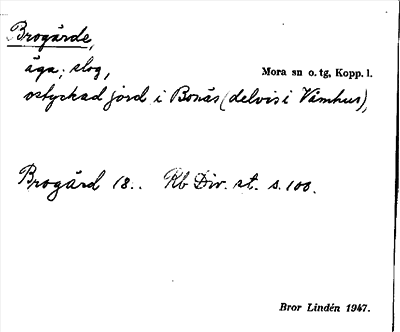 Brogärde,
äga; slog,
Mora sn o. tg, Kopp. l.
ostyckad jord i Bonäs (delvis i Våmhus),
Brogärd 18.. Kb Div. st. s. 100.
Bror Lindén 1947.